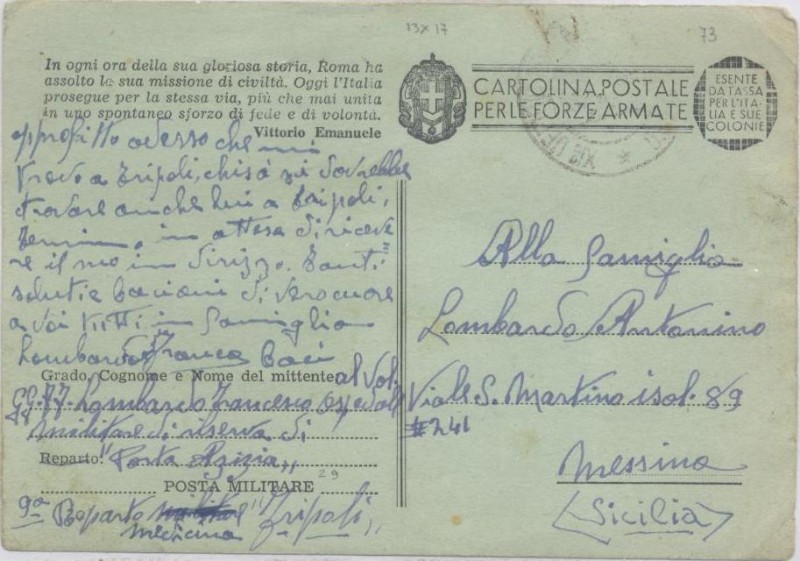 13 X 17
73
In ogni ora della sua gloriosa storia, Roma ha
assolto la sua missione di civiltà. Oggi l'Italia
prosegue per la stessa via, più che mai unita
in uno spontaneo sforzo di fede e di volontà.
Vittorio Emanuele
CARTOLINA POSTALE
PER LE FORZE ARMATE
ESENTE
DA TASSA
PER L'ITA-
LIA E SUE
COLONIE
approfitto adesso che mi
trovo a Tripoli, chisà si dovrebbe
trovare anche lui a Tripoli,
Termino, in attesa di riceve
re il suo in dirizzo. Tanti
saluti e bacioni di vero cuore
a voi tutti in famiglia
Lombardo Franco Baci
Grado, Cognome e Nome del mittente al Vol.
Lombardo Francesco Ospedale
militare di riserva di
Reparto: "Porta Azizia"
POSTA MILITARE 29
9° Reparto "Tripoli"
medicina
Alla Famiglia
Lombardo Antonino
Viale S. Martino isol. 89
# 241
Messina
(Sicilia)